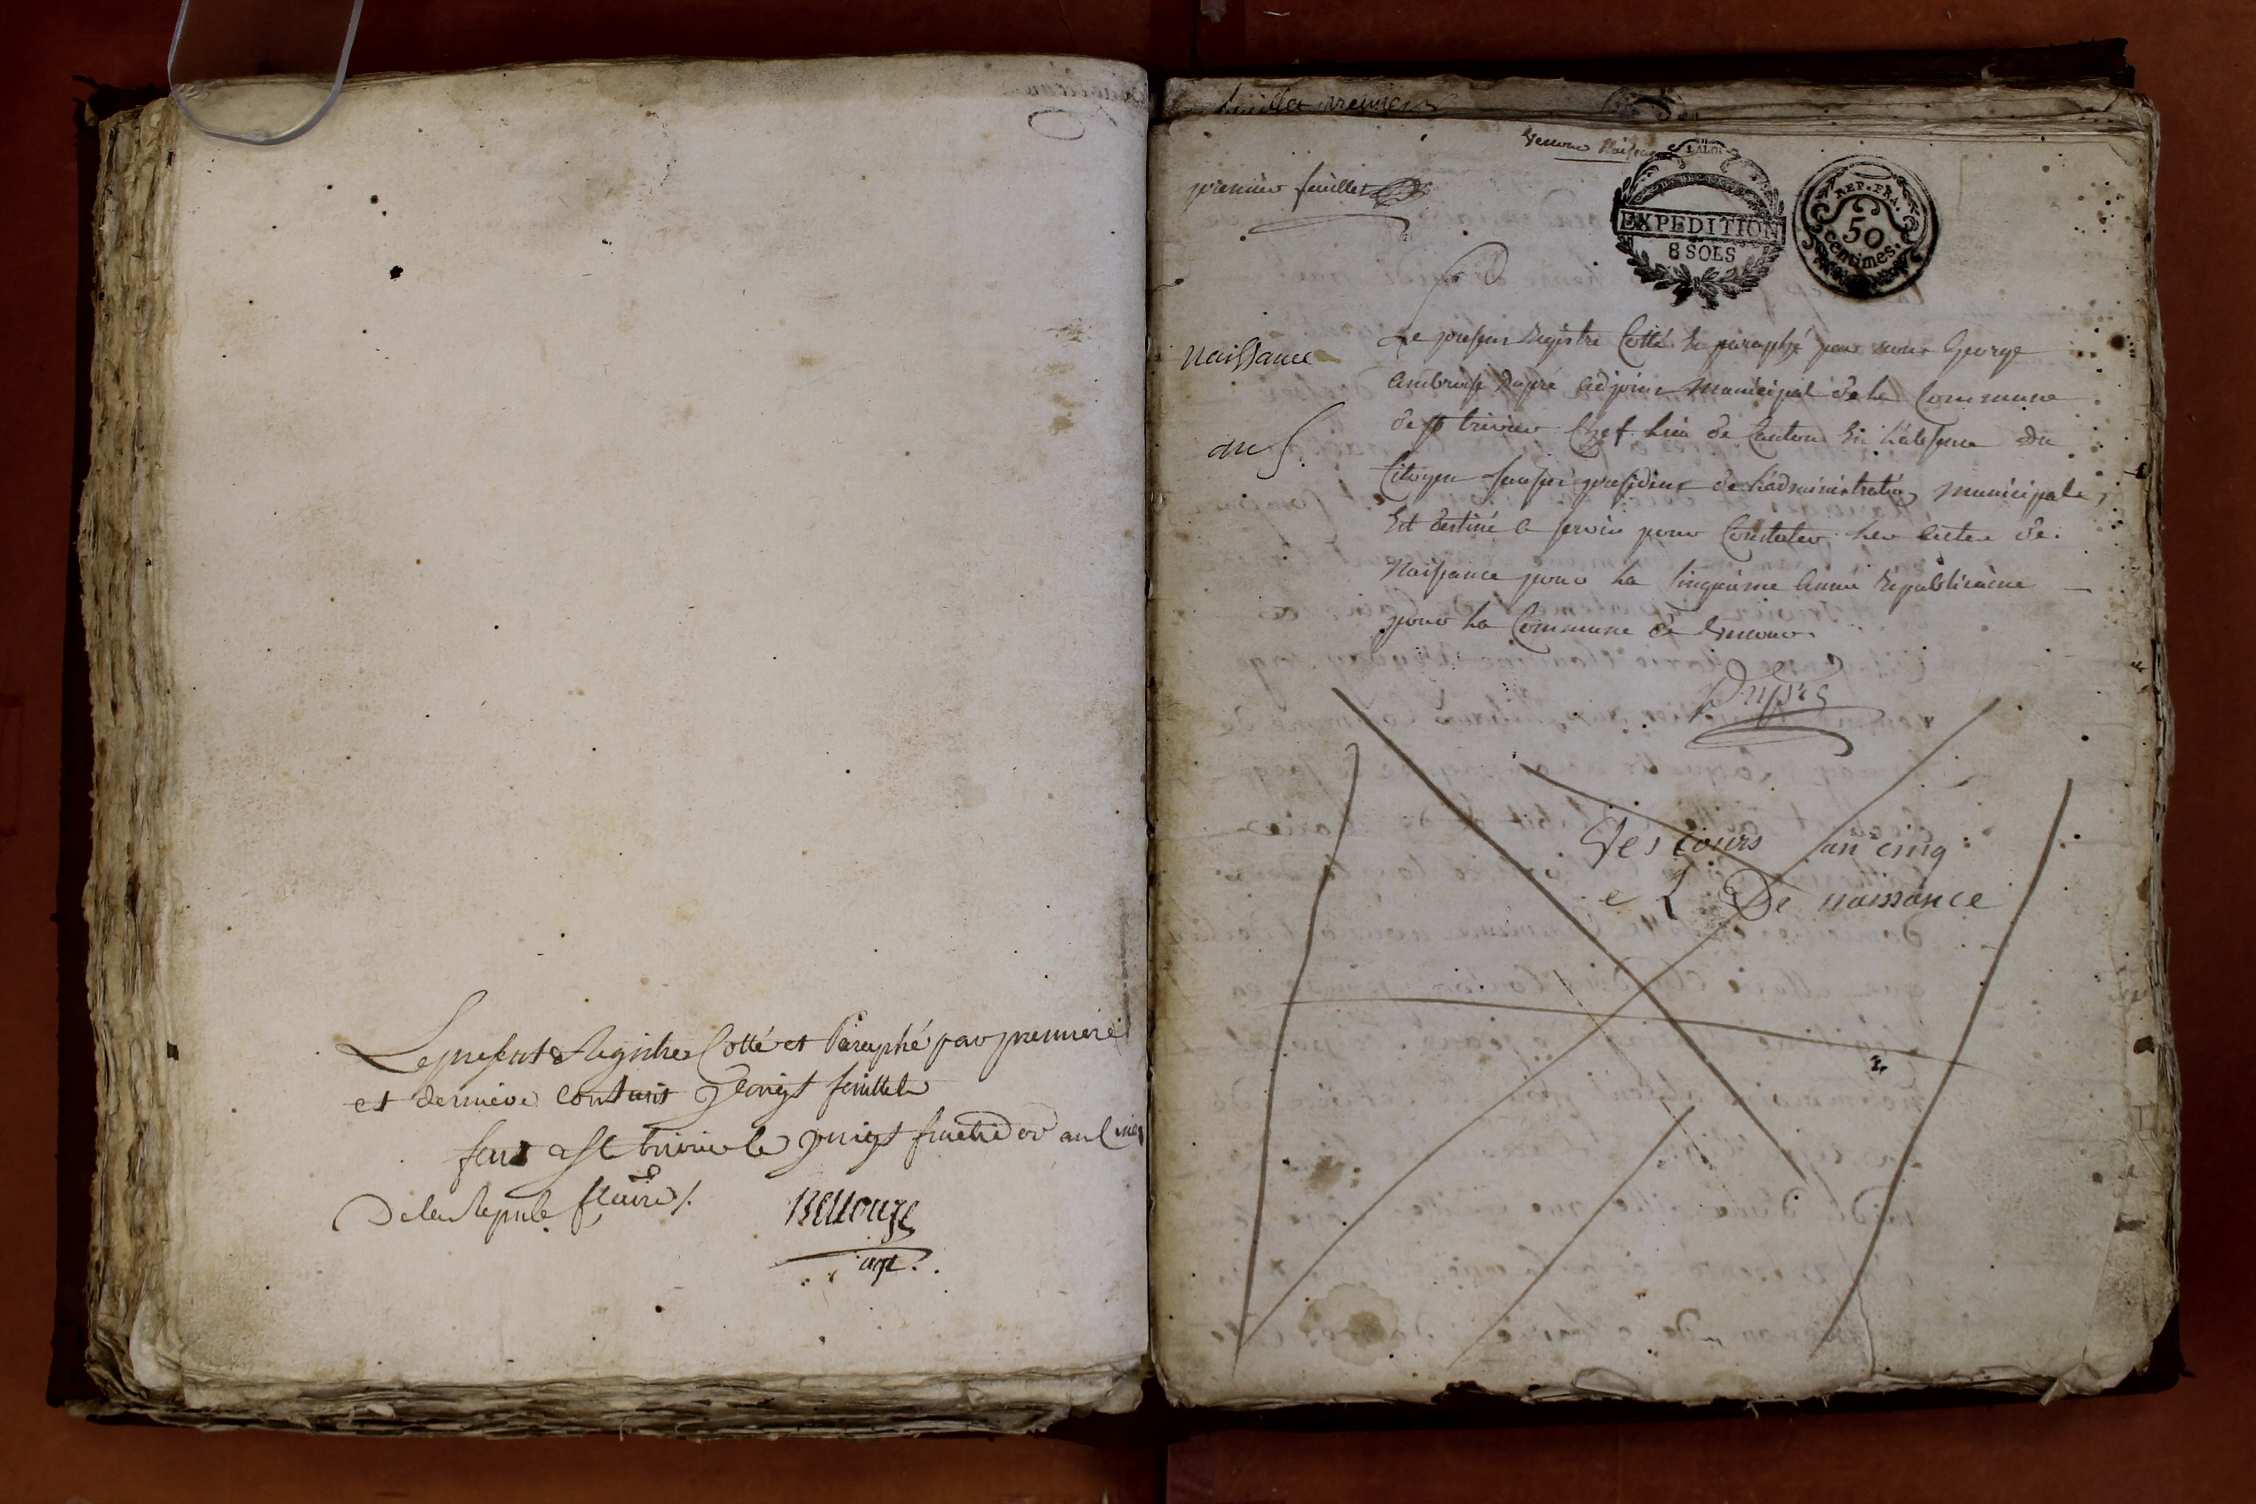 Le present Registre Cotté et Paraphé par premiere
et derniere contient vingt feuillets
fait a St trivier le vingt fructidor an Cinq
De la Repub.
Bellouze
agt.
feuillet premier
Vescours Naissance
premier feuillet
EXPEDITION
8 SOLS
REP. FRA.
50
centimes.
Naissance
an 5.
Le present Registre Cotté et paraphé par nous George
Ambroise Dupré adjoint Municipal de la Commune
de St trivier Chef Lieu de Canton En L'absence du
Citoyen president de L'administration municipale,
Est destiné a servir pour Constater Les actes de
Naissance pour La Cinquième Année Républicaine
pour La Commune de Vescour.
Dupré
Vescours an cinq
e L De naissance